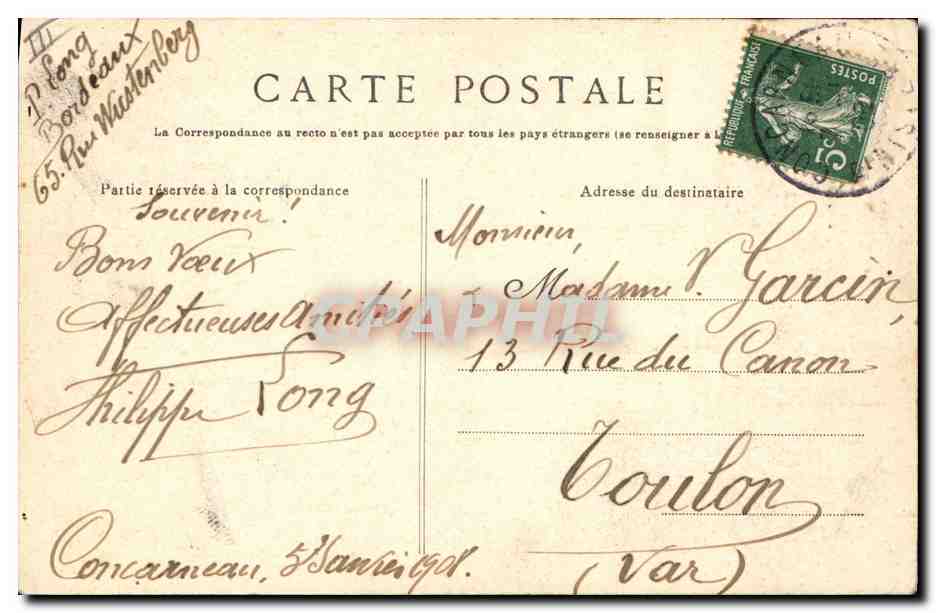 III
P. Long
Bordeaux
65. Rue Wustenberg
CARTE POSTALE
La Correspondance au recto n'est pas acceptée par tous les pays étrangers (se renseigner à l
RÉPUBLIQUE FRANÇAISE
POSTES
5c
Partie réservée à la correspondance
Adresse du destinataire
Souvenir!
Bons Vœux
affectueuses amitiés
Philippe Long
Concarneau, 5 Janvier 1908.
Monsieur,
Madame V. Garcin,
13 Rue du Canon
Toulon
(Var)
CPAPHIL